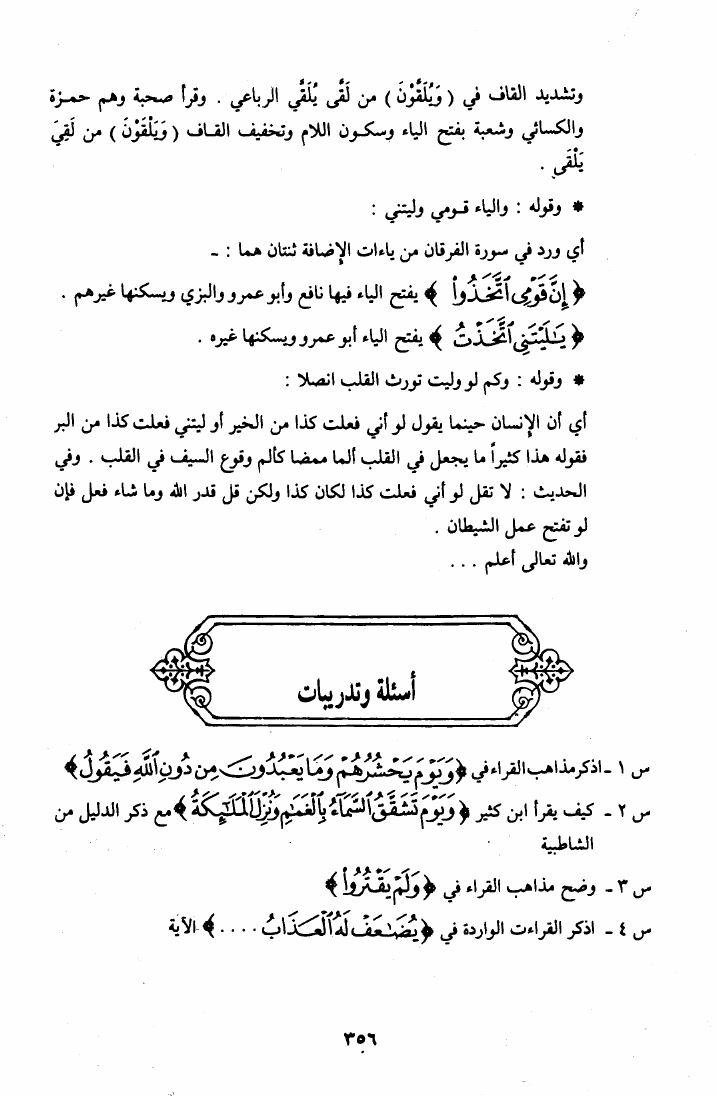 وتشديد القاف في ( وَيُلَقَّوْنَ ) من لَقَّى يُلَقَّي الرباعي . وقرأ صحبة وهم حمـزة
والكسائي وشعبة بفتح الياء وسكـون اللام وتخفيف القـاف ( وَيَلْقَوْنَ ) من لَقِيَ
يَلْقَى .
* وقوله : والياء قـومي وليتني :
أي ورد في سورة الفرقان من ياءات الإضافة ثنتان هما : -
﴿ إِنَّ قَوْمِى ٱتَّخَذُوا۟ ﴾ يفتح الياء فيها نافع وأبو عمرو والبزي ويسكنها غيرهم .
﴿ يَـٰلَيْتَنِى ٱتَّخَذْتُ ﴾ يفتح الياء أبو عمرو ويسكنها غيره .
* وقوله : وكم لو وليت تورث القلب انصلا :
أي أن الإنسان حينما يقول لو أني فعلت كذا من الخير أو ليتني فعلت كذا من البر
فقوله هذا كثيراً ما يجعل في القلب ألما ممضا كألم وقوع السيف في القلب . وفي
الحديث : لا تقل لو أني فعلت كذا لكان كذا ولكن قل قدر الله وما شاء فعل فإن
لو تفتح عمل الشيطان .
والله تعالى أعلم . . .
أسئلة وتدريبات
س ١ - اذكر مذاهب القراء في ﴿ وَيَوْمَ يَحْشُرُهُمْ وَمَا يَعْبُدُونَ مِن دُونِ ٱللَّهِ فَيَقُولُ ﴾
س ٢ - كيف يقرأ ابن كثير ﴿ وَيَوْمَ تَشَقَّقُ ٱلسَّمَآءُ بِٱلْغَمَـٰمِ وَنُزِّلَ ٱلْمَلَـٰٓئِكَةُ ﴾ مع ذكر الدليل من
الشاطبية
س ٣ - وضح مذاهب القراء في ﴿ وَلَمْ يَقْتُرُوا۟ ﴾
س ٤ - اذكر القراءت الواردة في ﴿ يُضَـٰعَفْ لَهُ ٱلْعَذَابُ . . . . ﴾ الآية
٣٥٦